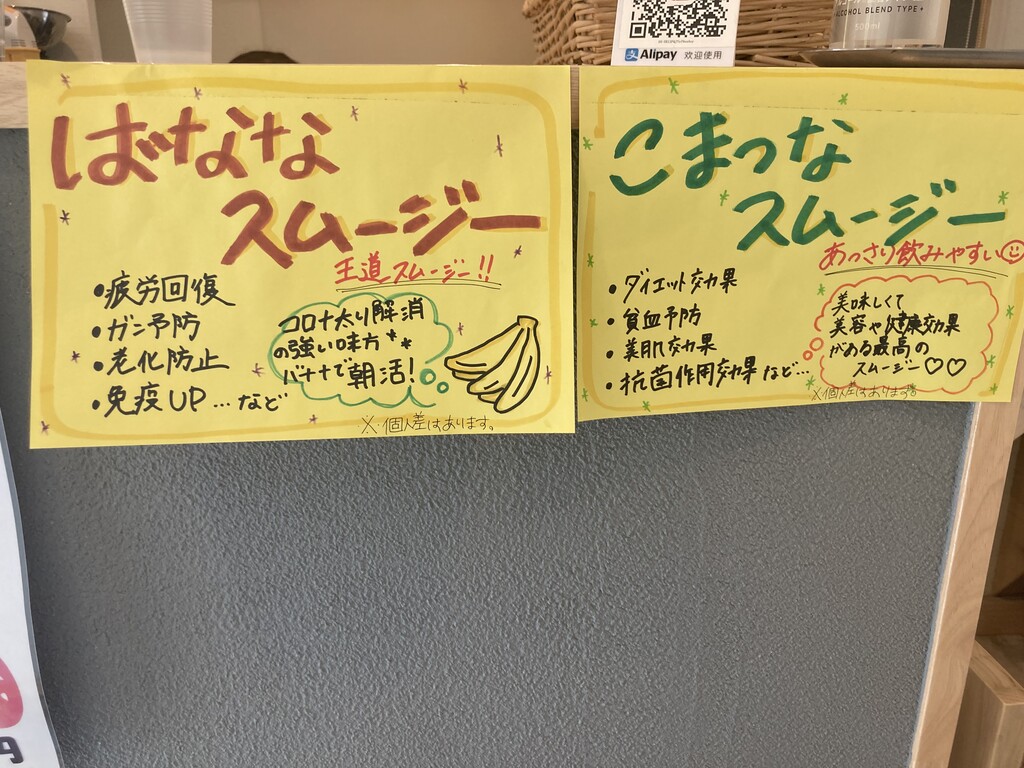 Alipay 欢迎使用
ALCOHOL BLEND TYPE+
500ml
ばなな
スムージー
王道スムージー!!
・疲労回復
・ガン予防
・老化防止
・免疫UP…など
コロナ太り解消
の強い味方**
バナナで朝活!
※個人差はあります。
こまつな
スムージー
あっさり飲みやすい
・ダイエット効果
・貧血予防
・美肌効果
・抗菌作用効果など…
美味しくて
美容や健康効果
がある最高の
スムージー♡♡
※個人差はあります。
円